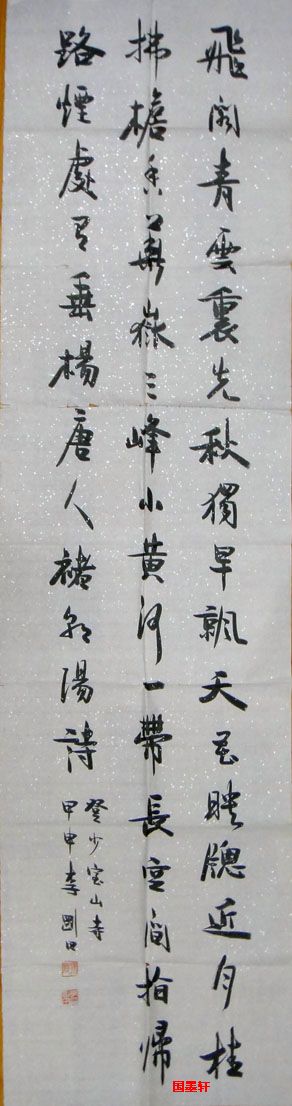 飛閣青雲裏先秋獨早飄天花映牕近月桂
拂檐香華嶽三峰小黃河一帶長空間指歸
路煙處有垂楊唐人褚朝陽詩
登少室山寺
甲申李剛田
国墨轩